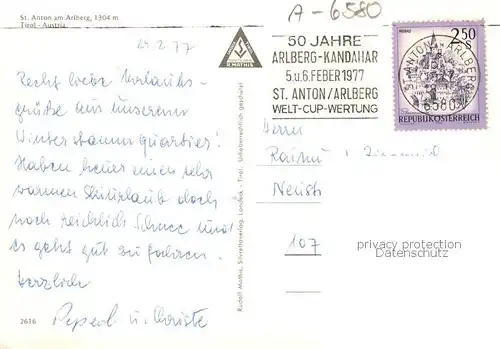 St. Anton am Arlberg, 1304 m
Tirol - Austria
24.2.77
Recht liebe Urlaubs-
grüße aus unserem
Winterstammquartier!
Haben heuer einen sehr
warmen Skiurlaub doch
noch reichlich Schnee und
es geht gut zu fahren.
Herzlich
Peperl u. Christe
2616
Rudolf Mathis, Silvrettaverlag, Landeck - Tirol. Urheberrechtlich geschützt
R. MATHIS
A-6580
50 JAHRE
ARLBERG-KANDAHAR
5.u.6.FEBER 1977
ST. ANTON/ARLBERG
WELT-CUP-WERTUNG
2.50
S
ST. ANTON ARLBERG
6580
REPUBLIK ÖSTERREICH
Herrn
107
privacy protection
Datenschutz